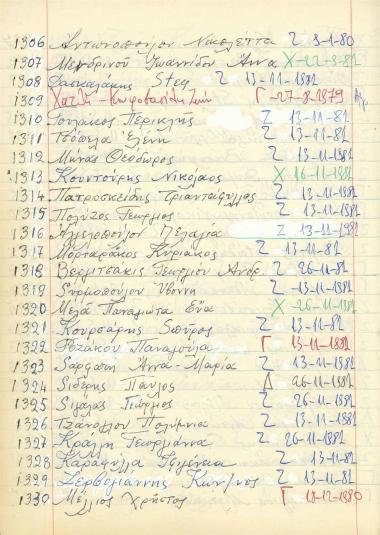 1306 Αντωνοπούλου Νικολέττα Ζ 3-1-80
1307 Μενδρινού Ιωαννίδου Άννα Χ -22-8-81
1308 Δασκαλάκης Στεφ Ζ 13-11-1981
1309 Χατζή- Ζωή Γ -27-8-1979
1310 Περικλής Ζ 13-11-81
1311 Τσόφελα Ελένη Ζ 13-11-81
1312 Μηνάς Θεόδωρος Ζ 13-11-1981
1313 Κουντούρης Νικόλαος Χ 16-11-1981
1314 Πατροσκείδης Τριαντάφυλλος Ζ 13-11-1981
1315 Πολύζος Γεώργιος Ζ 13-11-1981
1316 Πελαγία Ζ 13-11-1981
1317 Μορταράκος Κυριάκος Ζ 13-11-81
1318 Βερμιτσάκης Γεώργιον Ανδρ Ζ 26-11-81
1319 Υβόννη Ζ -13-11-81
1320 Μεγά Παναγιώτα Εύα Χ -26-11-1981
1321 Κουρσάρης Σπύρος Ζ 13-11-1981
1322 Ρεζάκου Παναγούλα Γ 13-11-1981
1323 Σαρρατη Άννα-Μαρία Ζ 13-11-1981
1324 Σιδέρης Παύλος Δ 26-11-1981
1325 Σιγάλας Γεώργιος Ζ 26-11-1981
1326 Τζάνογλου Πολύμνια Ζ 13-11-1981
1327 Κράλη Γεωργιάννα Ζ -26-11-1981
1328 Καραφύλλα Ιφιγένεια Ζ 13-11-1981
1329 Ζερβογιάννης Κων/νος Ζ 13-11-81
1330 Μέλλιος Χρήστος Γ 18-12-1980